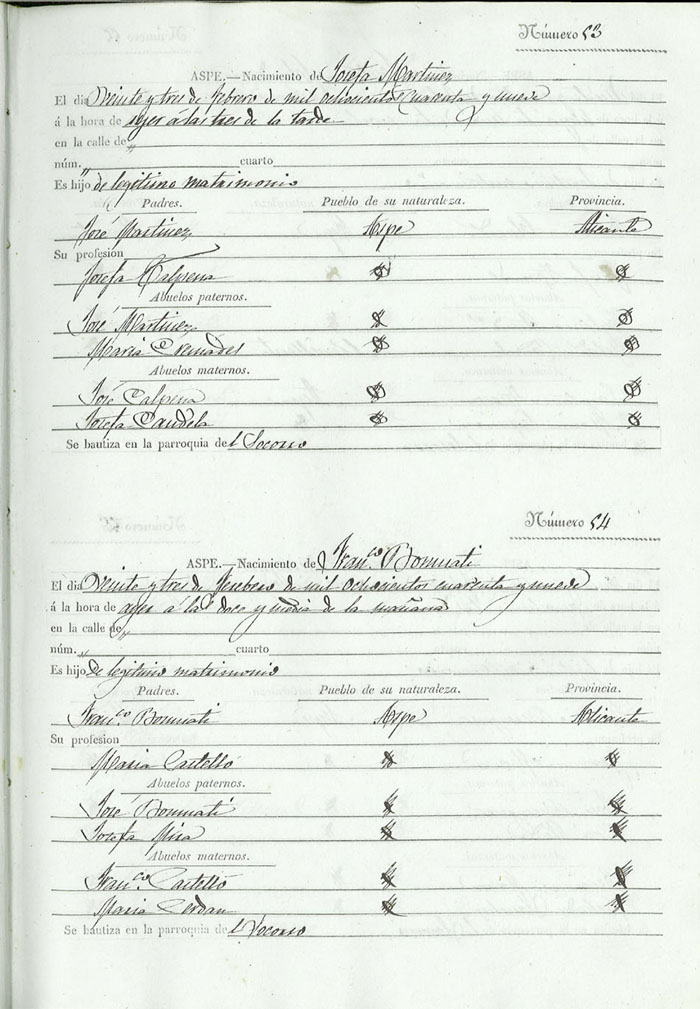 Número 53
ASPE.—Nacimiento de Josefa Martinez
El dia Veinte y tres de febrero de mil ochocientos cuarenta y nueve
á la hora de ayer á las tres de la tarde
en la calle de „
núm. „ cuarto
Es hijo de legitimo matrimonio
Padres. Pueblo de su naturaleza. Provincia.
José Martinez Aspe Alicante
Su profesion
Josefa Calpena
Abuelos paternos.
José Martinez
Maria Cremades
Abuelos maternos.
José Calpena
Josefa Candela
Se bautiza en la parroquia del Socorro
Número 54
ASPE.—Nacimiento de Franco. Bonmati
El dia Veinte y tres de Febrero de mil ochocientos cuarenta y nueve
á la hora de ayer á las doce y media de la mañana
en la calle de „
núm. „ cuarto
Es hijo de legitimo matrimonio
Padres. Pueblo de su naturaleza. Provincia.
Franco. Bonmati Aspe Alicante
Su profesion
Maria Castelló
Abuelos paternos.
José Bonmati
Josefa Mira
Abuelos maternos.
Franco. Castelló
Maria Cerdan
Se bautiza en la parroquia del Socorro